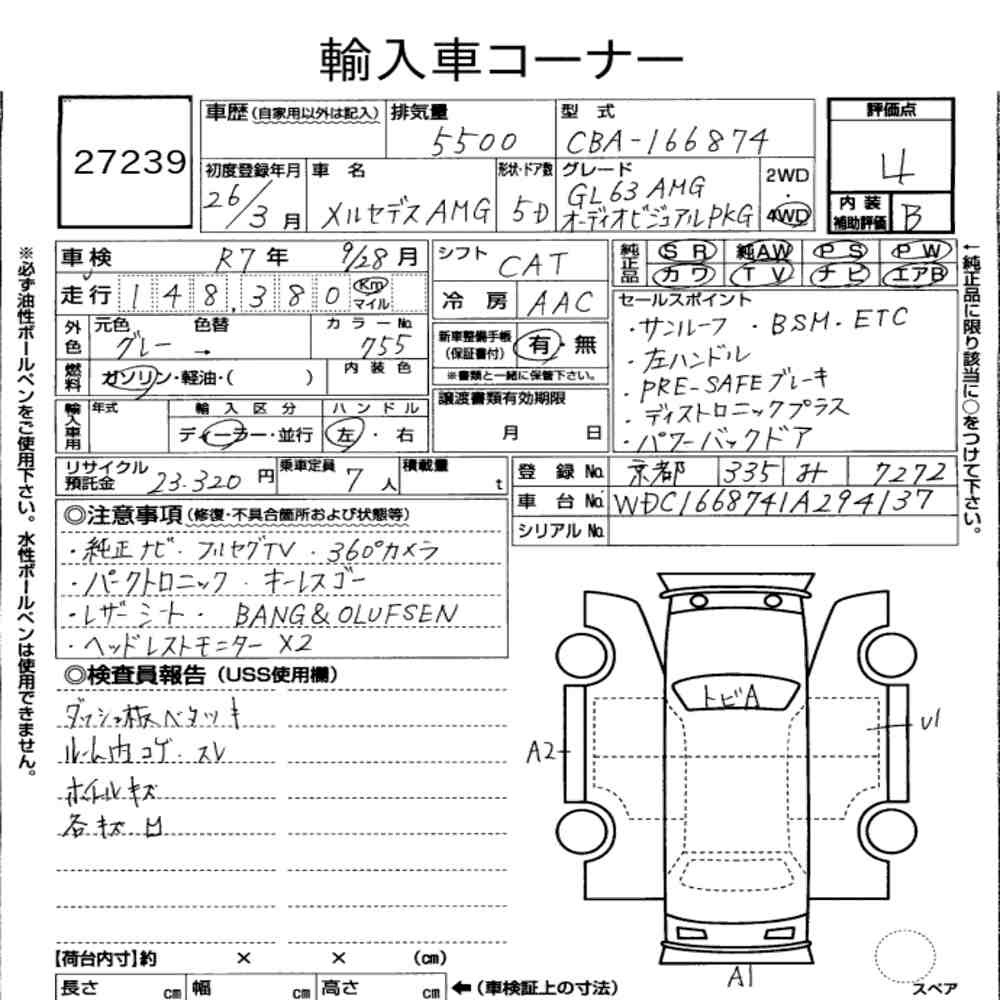 輸入車コーナー
27239
車歴(自家用以外は記入)
排気量
5500
型 式
CBA-166874
評価点
4
初度登録年月
26/3月
車 名
メルセデスAMG
形状・ドア数
5D
グレード
GL63 AMG
オーディオビジュアルPKG
2WD
・
4WD
内 装
補助評価
B
車検 R7年 9/28月
走行 148,380 Km マイル
シフト CAT
冷 房 AAC
純正品
SR 純AW PS PW
カワ TV ナビ エアB
外色
元色 色替
グレー →
カラーNo.
755
新車整備手帳
(保証書付)
有・無
※書類と一緒に保管下さい。
セールスポイント
・サンルーフ ・BSM・ETC
・左ハンドル
・PRE-SAFEブレーキ
・ディストロニックプラス
・パワーバックドア
燃料
ガソリン・軽油・( )
内装色
輸入車用
年式
輸入区分
ディーラー・並行
ハンドル
左・右
譲渡書類有効期限
月 日
リサイクル
預託金
23.320円
乗車定員
7人
積載量
t
登録No. 京都 335 み 7272
車台No. WDC1668741A294137
シリアルNo.
◎注意事項(修復・不具合箇所および状態等)
・純正ナビ・フルセグTV・360°カメラ
・パークトロニック・キーレスゴー
・レザーシート・ BANG&OLUFSEN
・ヘッドレストモニターX2
◎検査員報告(USS使用欄)
ダッシュ板ベタツキ
ルーム内コゲ・スレ
ホイルキズ
各キズ凹
トビA
A2
U1
A1
【荷台内寸】約 × × (cm)
長さ cm 幅 cm 高さ cm
←(車検証上の寸法)
スペア
※必ず油性ボールペンをご使用下さい。水性ボールペンは使用できません。
←純正品に限り該当に○をつけて下さい。